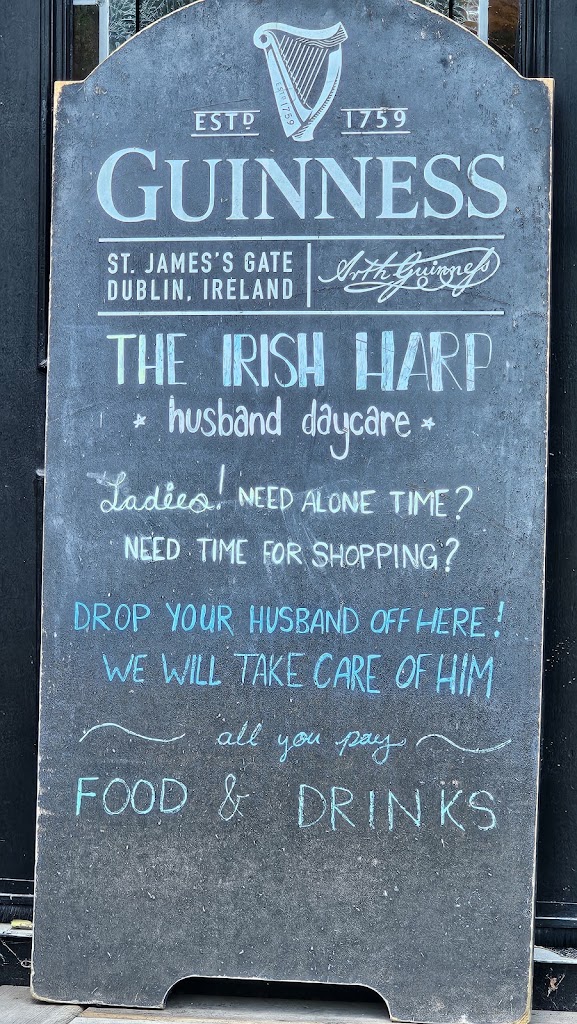 ESTD 1759
EST 1759
GUINNESS
ST. JAMES'S GATE
DUBLIN, IRELAND
Arth Guinness
THE IRISH HARP
* husband daycare *
Ladies! NEED ALONE TIME?
NEED TIME FOR SHOPPING?
DROP YOUR HUSBAND OFF HERE!
WE WILL TAKE CARE OF HIM
all you pay
FOOD & DRINKS